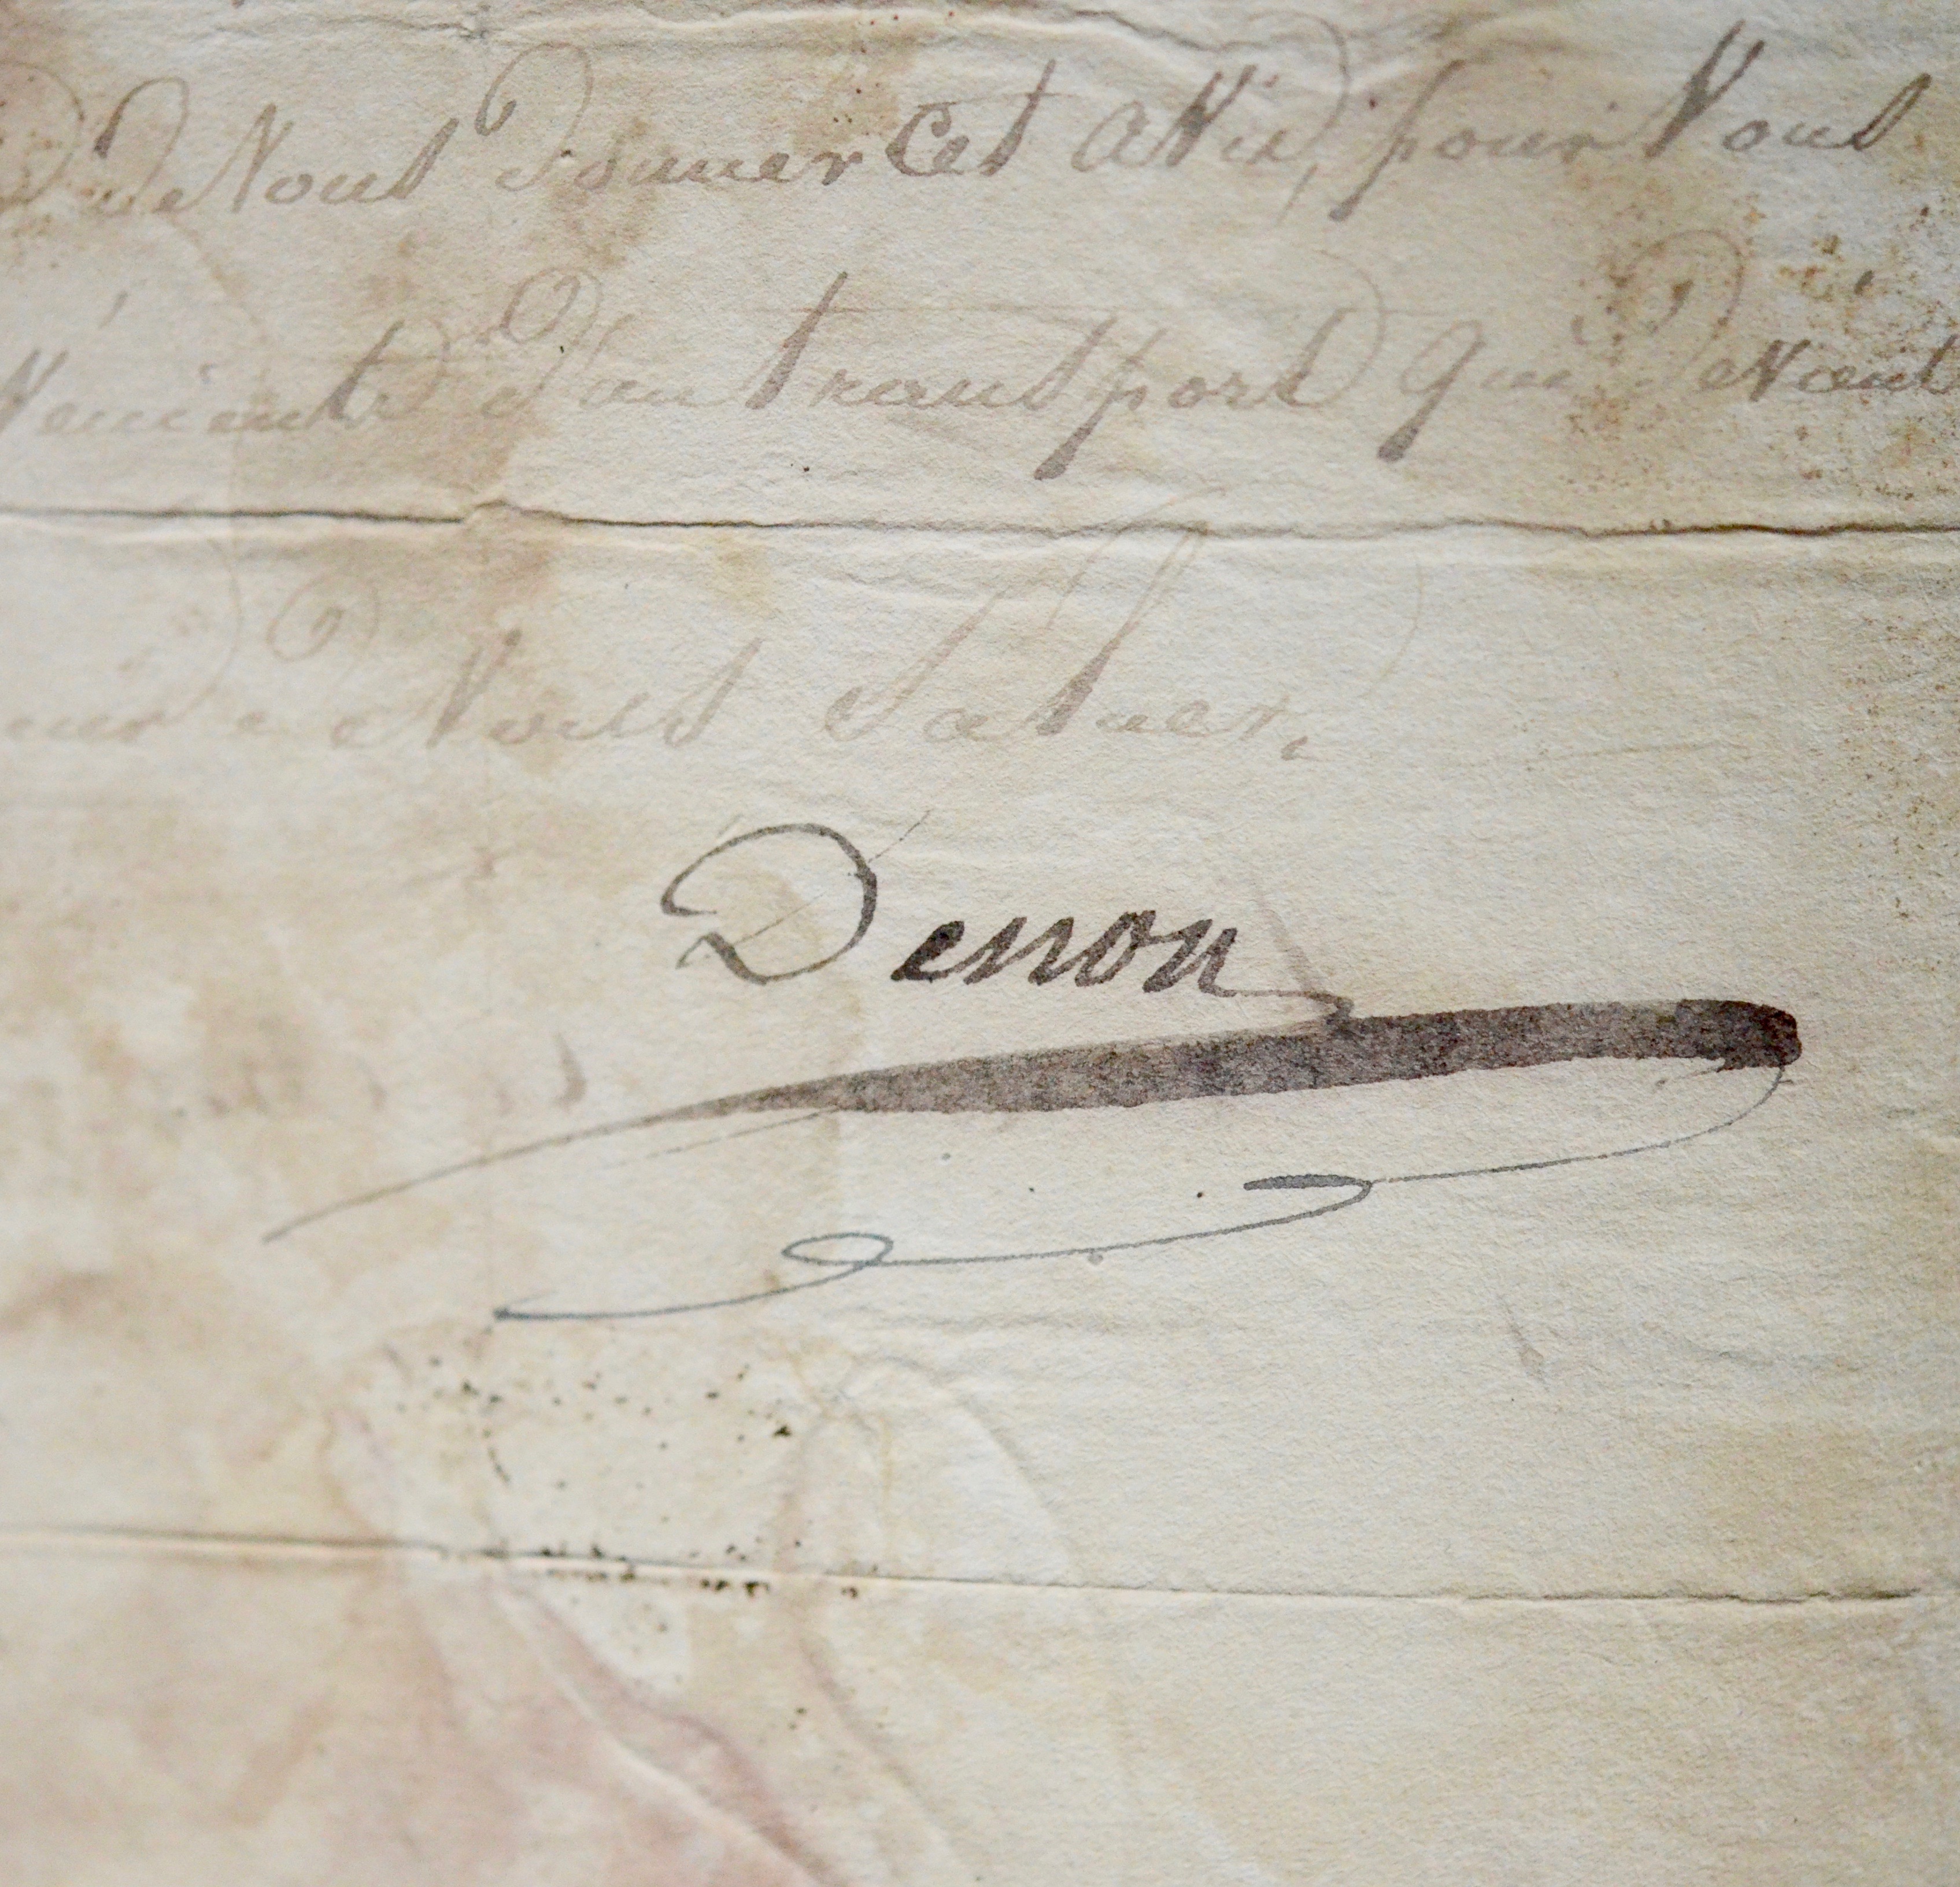 de Vous donner cet avis, pour Vous
Venients d'un transport qui devient
Vous saluer.
Denon